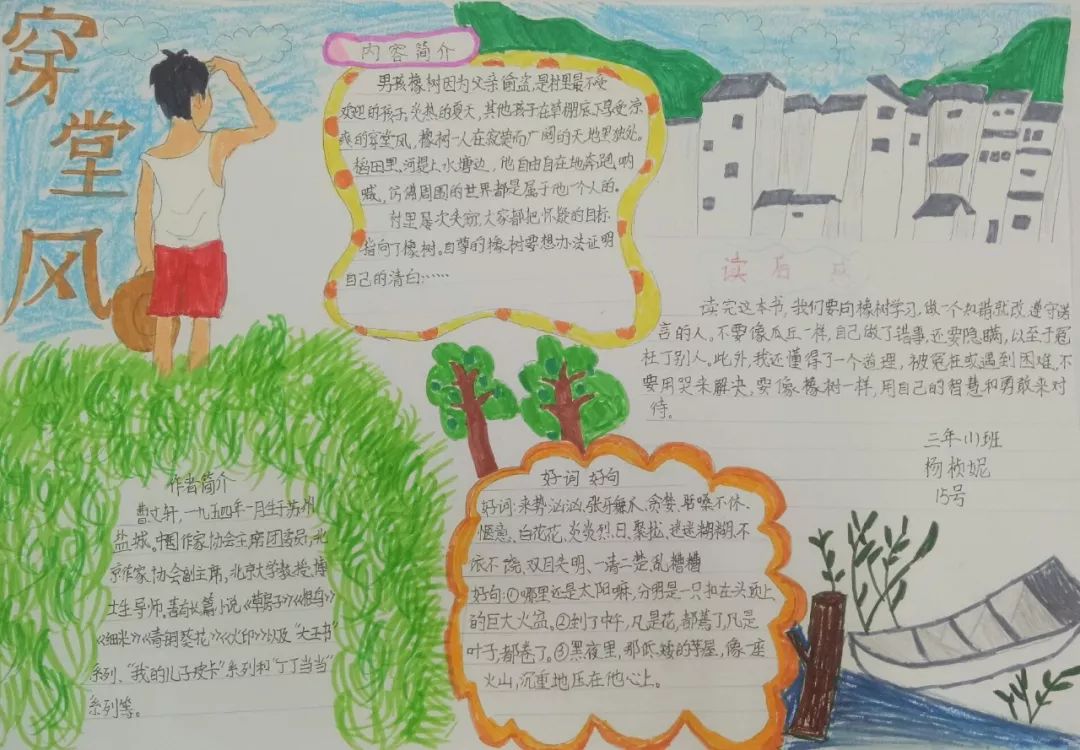 穿堂风
内容简介
男孩橡树因为父亲偷盗,是村里最不受
欢迎的孩子,炎热的夏天,其他孩子在草棚底下享受凉
爽的穿堂风,橡树一人在寂静而广阔的天地里独处。
稻田里、河堤上、水塘边,他自由自在地奔跑、呐
喊,仿佛周围的世界都是属于他一个人的。
村里屡次失窃,大家都把怀疑的目标
指向了橡树。自尊的橡树要想办法证明
自己的清白……
读后感
读完这本书,我们要向橡树学习,做一个知错就改遵守诺
言的人。不要像瓜丘一样,自己做了错事,还要隐瞒,以至于冤
枉了别人。此外,我还懂得了一个道理,被冤枉或遇到困难,不
要用哭来解决,要像橡树一样,用自己的智慧和勇敢来对
待。
三年(1)班
杨桢妮
15号
作者简介
曹文轩,一九五四年一月生于苏州
盐城。中国作家协会主席团委员,北
京作家协会副主席,北京大学教授,博
士生导师。著有长篇小说《草房子》《根鸟》
《细米》《青铜葵花》《火印》以及“大王书”
系列、“我的儿子皮卡”系列和“丁丁当当”
系列等。
好词 好句
好词:来势汹汹、张牙舞爪、贪婪、喋喋不休、
惬意、白花花、炎炎烈日、聚拢、迷迷糊糊、不
依不饶、双目失明、一清二楚、乱糟糟
好句:①哪里还是太阳嘛,分明是一只扣在头顶上
的巨大火盆。②到了中午,凡是花,都蔫了,凡是
叶子,都卷了。③黑夜里,那低矮的茅屋,像一座
火山,沉重地压在他心上。